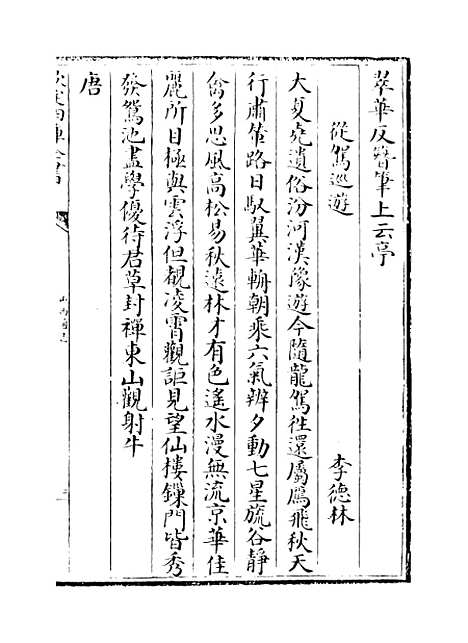 萃華反簪筆上云亭
從駕巡遊　李德林
大夏堯遺俗汾河漢豫遊今隨龍駕徃還屬鴈飛秋天
行肅筞路日馭翼華輈朝乘六氣辨夕動七星旒谷靜
禽多思風高松易秋遠林才有色遙水漫無流京華佳
麗所目極與雲浮但覩凌霄觀詎見望仙樓鏤門皆秀
發鴛池盡學優待君草封禪東山觀射牛
唐